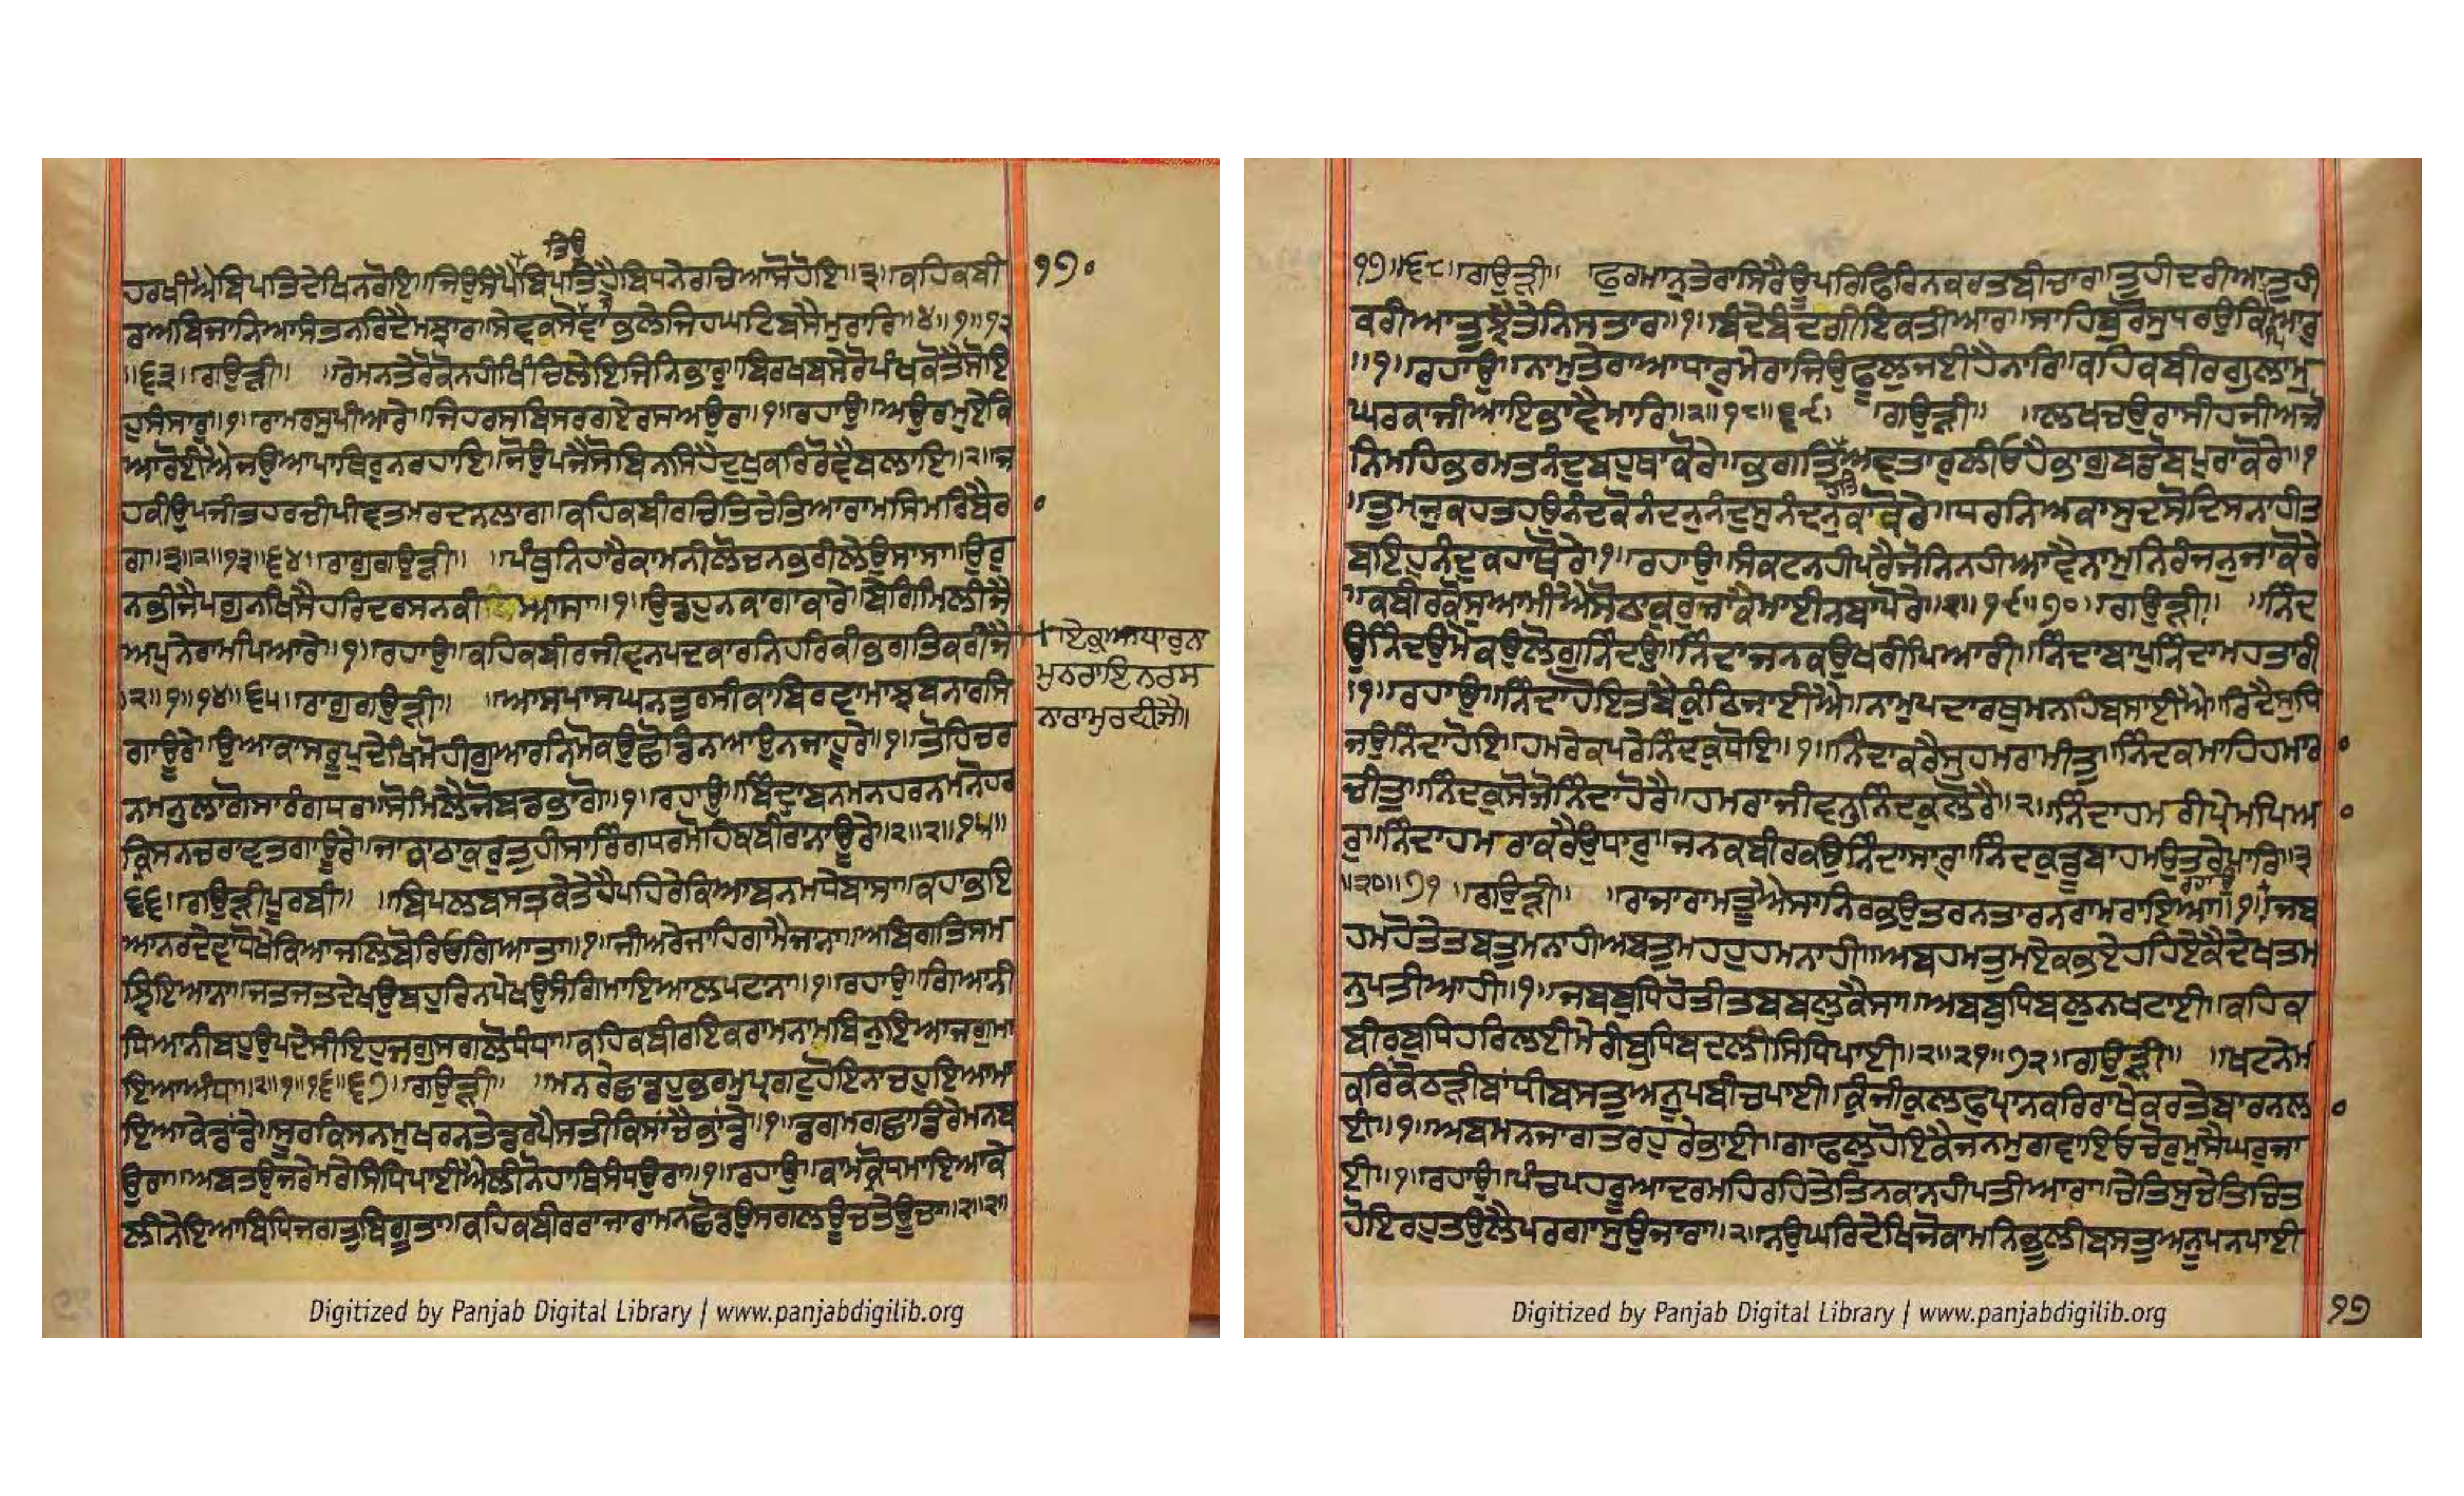 ਹਰਖੀਐਬਿਪਤਿਦੇਖਿਨਰੋਇ॥ਜਿਉਸੰਪੈਬਿਪਤਿਹੈਬਿਧਨੇਰਚਿਆਸੋਹੋਇ॥੩॥ਕਹਿਕਬੀ
ਤਿਉ
੧੭੦
ਰਅਬਿਜਾਨਿਆਸੰਤਨਰਿਦੈਮਝਾਰ॥ਸੇਵਕਸੋਵਾਭਲੇਜਿਹਘਟਿਬਸੈਮੁਰਾਰਿ॥੪॥੧॥੧੨
॥੬੩॥ਗਉੜੀ॥ ॥ਰੇਮਨਤੇਰੋਕੋਨਹੀਖਿੰਚਿਲੇਇਜਿਨਿਭਾਰੁ॥ਬਿਰਖਬਸੇਰੋਪੰਖਕੋਤੈਸੋਇ
ਹੁਸੰਸਾਰੁ॥੧॥ਰਾਮਰਸੁਪੀਆਰੇ॥ਜਿਹਰਸਬਿਸਰਗਏਰਸਅਉਰ॥੧॥ਰਹਾਉ॥ਅਉਰਮੁਏਕਿ
ਆਰੋਈਐਜਉਆਪਾਥਿਰੁਨਰਹਾਇ॥ਜੋਉਪਜੈਸੋਬਿਨਸਿਹੈਦੁਖੁਕਰਿਰੋਵੈਬਲਾਇ॥੨॥ਜ
ਹਕੀਉਪਜੀਤਹਰਚੀਪੀਵਤਮਰਦਨਲਾਗ॥ਕਹਿਕਬੀਰਚਿਤਿਚੇਤਿਆਰਾਮਸਿਮਰਿਬੈਰ
ਗ॥੩॥੨॥੧੩॥੬੪॥ਰਾਗੁਗਉੜੀ॥ ॥ਪੰਥੁਨਿਹਾਰੈਕਾਮਨੀਲੋਚਨਭਰੀਲੇਉਸਾਸਾ॥ਉਰੁ
ਨਭੀਜੈਪਗੁਨਖਿਸੈਹਰਿਦਰਸਨਕੀਆਸਾ॥੧॥ਉਡਹੁਨਕਾਗਾਕਾਰੇ॥ਬੇਗਿਮਿਲੀਜੈ
ਅਪੁਨੇਰਾਮਪਿਆਰੇ॥੧॥ਰਹਾਉ॥ਕਹਿਕਬੀਰਜੀਵਨਪਦਕਾਰਨਿਹਰਿਕੀਭਗਤਿਕਰੀਜੈ
+ਏਕੁਆਧਾਰੁਨਾ
ਮੁਨਰਾਇਨਰਸ
ਨਾਰਾਮੁਰਵੀਜੈ॥
॥੨॥੧॥੧੪॥੬੫॥ਰਾਗੁਗਉੜੀ॥ ॥ਆਸਪਾਸਘਨਤੁਰਸੀਕਾਬਿਰਵਾਮਾਝਬਨਾਰਸਿ
ਗਾਊਰੇ॥ਉਆਕਾਸਰੂਪੁਦੇਖਿਮੋਹੀਗੁਆਰਨਿਮੋਕਉਛੋਡਿਨਆਉਨਜਾਹੁਰੇ॥੧॥ਤੋਹਿਚਰ
ਨਮਨੁਲਾਗੋਸਾਰੰਗਧਰ॥ਸੋਮਿਲੈਜੋਬਡਭਾਗੋ॥੧॥ਰਹਾਉ॥ਬਿੰਦ੍ਰਾਬਨਮਨਹਰਨਮਨੋਹਰ
ਕ੍ਰਿਸਨਚਰਾਵਤਗਾਊਰੇ॥ਜਾਕਾਠਾਕੁਰੁਤੁਹੀਸਾਰਿੰਗਧਰਮੋਹਿਕਬੀਰਾਨਾਊਰੇ॥੨॥੨॥੧੫॥
੬੬॥ਗਉੜੀਪੂਰਬੀ॥ ॥ਬਿਪਲਬਸਤ੍ਰਕੇਤੇਹੈਪਹਿਰੇਕਿਆਬਨਮਧੇਬਾਸਾ॥ਕਹਾਭਇ
ਆਨਰਦੇਵਾਧੋਖੇਕਿਆਜਲਿਬੋਰਿਓਗਿਆਤਾ॥੧॥ਜੀਅਰੇਜਾਹਿਗਾਮੈਜਾਨਾ॥ਅਬਿਗਤਿਸਮ
ਝੁਇਆਨਾ॥ਜਤਜਤਦੇਖਉਬਹੁਰਿਨਪੇਖਉਸੰਗਿਮਾਇਆਲਪਟਾਨਾ॥੧॥ਰਹਾਉ॥ਗਿਆਨੀ
ਧਿਆਨੀਬਹੁਉਪਦੇਸੀਇਹੁਜਗੁਸਗਲੋਧੰਧਾ॥ਕਹਿਕਬੀਰਇਕਰਾਮਨਾਮਬਿਨੁਇਆਜਗੁਮਾ
ਇਆਅੰਧਾ॥੨॥੧॥੧੬॥੬੭॥ਗਉੜੀ॥ ॥ਮਨਰੇਛਾਡਹੁਭਰਮੁਪ੍ਰਗਟਹੋਇਨਾਚਹੁਇਆਮਾ
ਇਆਕੇਡਾਂਡੇ॥ਸੂਰਕਿਸਨਮੁਖਰਨਤੇਡਰਪੈਸਤੀਕਿਸਾਂਚੈਭਾਂਡੇ॥੧॥ਡਗਮਗਛਾਡਿਰੇਮਨਬ
ਉਰਾ॥ਅਬਤਉਜਰੇਮਰੇਸਿਧਿਪਾਈਐਲੀਨੋਹਾਥਿਸੰਧਉਰਾ॥੧॥ਰਹਾਉ॥ਕਾਮਕ੍ਰੋਧਮਾਇਆਕੇ
ਲੀਨੇਇਆਬਿਧਿਜਗਤੁਬਿਗੂਤਾ॥ਕਹਿਕਬੀਰਰਾਜਾਰਾਮਨਛੋਡਉਸਗਲਊਚਤੇਊਚਾ॥੨॥੨॥
੧੭॥੬੮॥ਗਉੜੀ॥ ਫੁਰਮਾਨੁਤੇਰਾਸਿਰੈਊਪਰਿਫਿਰਿਨਕਰਤਬੀਚਾਰ॥ਤੁਹੀਦਰੀਆਤੁਹੀ
ਕਰੀਆਤੁਝੈਤੇਨਿਸਤਾਰ॥੧॥ਬੰਦੇਬੰਦਗੀਇਕਤੀਆਰ॥ਸਾਹਿਬੁਰੋਸੁਧਰਉਕਿਪਿਆਰੁ
॥੧॥ਰਹਾਉ॥ਨਾਮੁਤੇਰਾਆਧਾਰੁਮੇਰਾਜਿਉਫੂਲੁਜਈਹੈਨਾਰਿ॥ਕਹਿਕਬੀਰਗੁਲਾਮੁ
ਘਰਕਾਜੀਆਇਭਾਵੈਮਾਰਿ॥੨॥੧੮॥੬੯॥ ॥ਗਉੜੀ॥ ॥ਲਖਚਉਰਾਸੀਹਜੀਅਜੋ
ਨਿਮਹਿਭਰਮਤਨੰਦੁਬਹੁਥਾਕੋਰੇ॥ਭਗਤਿਅਵਤਾਰੁਲੀਓਹੈਭਾਗੁਬਡੋਬਪੁਰਾਕੋਰੇ॥੧
ਹੇਤਿ
॥ਤੁਮਜੁਕਹਤਹਉਨੰਦਕੋਨੰਦਨੁਨੰਦਸੁਨੰਦਨੁਕਾਕੋਰੇ॥ਧਰਨਿਅਕਾਸੁਦਸੋਦਿਸਨਾਹੀਤ
ਬਇਹੁਨੰਦੁਕਹਾਥੋਰੇ॥੧॥ਰਹਾਉ॥ਸੰਕਟਨਹੀਪਰੈਜੋਨਿਨਹੀਆਵੈਨਾਮੁਨਿਰੰਜਨੁਜਾਕੋਰੇ
॥ਕਬੀਰਕੋਸੁਆਮੀਐਸੋਠਾਕੁਰੁਜਾਕੈਮਾਈਨਬਾਪੋਰੇ॥੨॥੧੯॥੭੦॥ਗਉੜੀ॥ ॥ਨਿੰਦ
ਉਨਿੰਦਉਮੋਕਉਲੋਗੁਨਿੰਦਉ॥ਨਿੰਦਾਜਨਕਉਖਰੀਪਿਆਰੀ॥ਨਿੰਦਾਬਾਪੁਨਿੰਦਾਮਹਤਾਰੀ
॥੧॥ਰਹਾਉ॥ਨਿੰਦਾਹੋਇਤਬੈਕੁੰਠਿਜਾਈਐ॥ਨਾਮੁਪਦਾਰਥੁਮਨਹਿਬਸਾਈਐ॥ਰਿਦੈਸੁਧਿ
ਜਉਨਿੰਦਾਹੋਇ॥ਹਮਰੇਕਪਰੇਨਿੰਦਕੁਧੋਇ॥੧॥ਨਿੰਦਾਕਰੈਸੁਹਮਰਾਮੀਤੁ॥ਨਿੰਦਕਮਾਹਿਹਮਾਰ
ਚੀਤੁ॥ਨਿੰਦਕੁਸੋਜੋਨਿੰਦਾਹੋਰੈ॥ਹਮਰਾਜੀਵਨੁਨਿੰਦਕੁਲੋਰੈ॥੨॥ਨਿੰਦਾਹਮਰੀਪ੍ਰੇਮਪਿਅ
ਰੁ॥ਨਿੰਦਾਹਮਰਾਕਰੈਉਧਾਰੁ॥ਜਨਕਬੀਰਕਉਨਿੰਦਾਸਾਰੁ॥ਨਿੰਦਕੁਡੂਬਾਹਮਉਤਰੇਪਾਰਿ॥੩
॥੨੦॥੭੧॥ਗਉੜੀ॥ ॥ਰਾਜਾਰਾਮਤੂਐਸਾਨਿਰਭਉਤਰਨਤਾਰਨਰਾਮਰਾਇਆ॥੧॥ਜਬ
ਰਹਾਉ
ਹਮਹੋਤੇਤਬਤੁਮਨਾਹੀਅਬਤੁਮਹਹੁਹਮਨਾਹੀ॥ਅਬਹਮਤੁਮਏਕਭਏਹਹਿਏਕੈਦੇਖਤਮ
ਨੁਪਤੀਆਹੀ॥੧॥ਜਬਬੁਧਿਹੋਤੀਤਬਬਲੁਕੈਸਾ॥ਅਬਬੁਧਿਬਲੁਨਖਟਾਈ॥ਕਹਿਕ
ਬੀਰਬੁਧਿਹਰਿਲਈਮੇਰੀਬੁਧਿਬਦਲੀਸਿਧਿਪਾਈ॥੨॥੨੧॥੭੨॥ਗਉੜੀ॥ ॥ਖਟਨੇਮ
ਕਰਿਕੋਠੜੀਬਾਂਧੀਬਸਤੁਅਨੂਪੁਬੀਚਪਾਈ॥ਕੁੰਜੀਕੁਲਫੁਪ੍ਰਾਨਕਰਿਰਾਖੇਕਰਤੇਬਾਰਨਲ
ਈ॥੧॥ਅਬਮਨਜਾਗਤਰਹੁਰੇਭਾਈ॥ਗਾਫਲੁਹੋਇਕੈਜਨਮੁਗਵਾਇਓਚੋਰੁਮੁਸੈਘਰੁਜਾ
ਈ॥੧॥ਰਹਾਉ॥ਪੰਚਪਹਰੂਆਦਰਮਹਿਰਹਤੇਤਿਨਕਾਨਹੀਪਤੀਆਰਾ॥ਚੇਤਿਸੁਚੇਤਚਿਤ
ਹੋਇਰਹੁਤਉਲੈਪਰਗਾਸੁਉਜਾਰਾ॥੨॥ਨਉਘਰਿਦੇਖਿਜੋਕਾਮਨਿਭੂਲੀਬਸਤੁਅਨੂਪਨਪਾਈ
੧੭
Digitized by Panjab Digital Library | www.panjabdigilib.org
Digitized by Panjab Digital Library | www.panjabdigilib.org